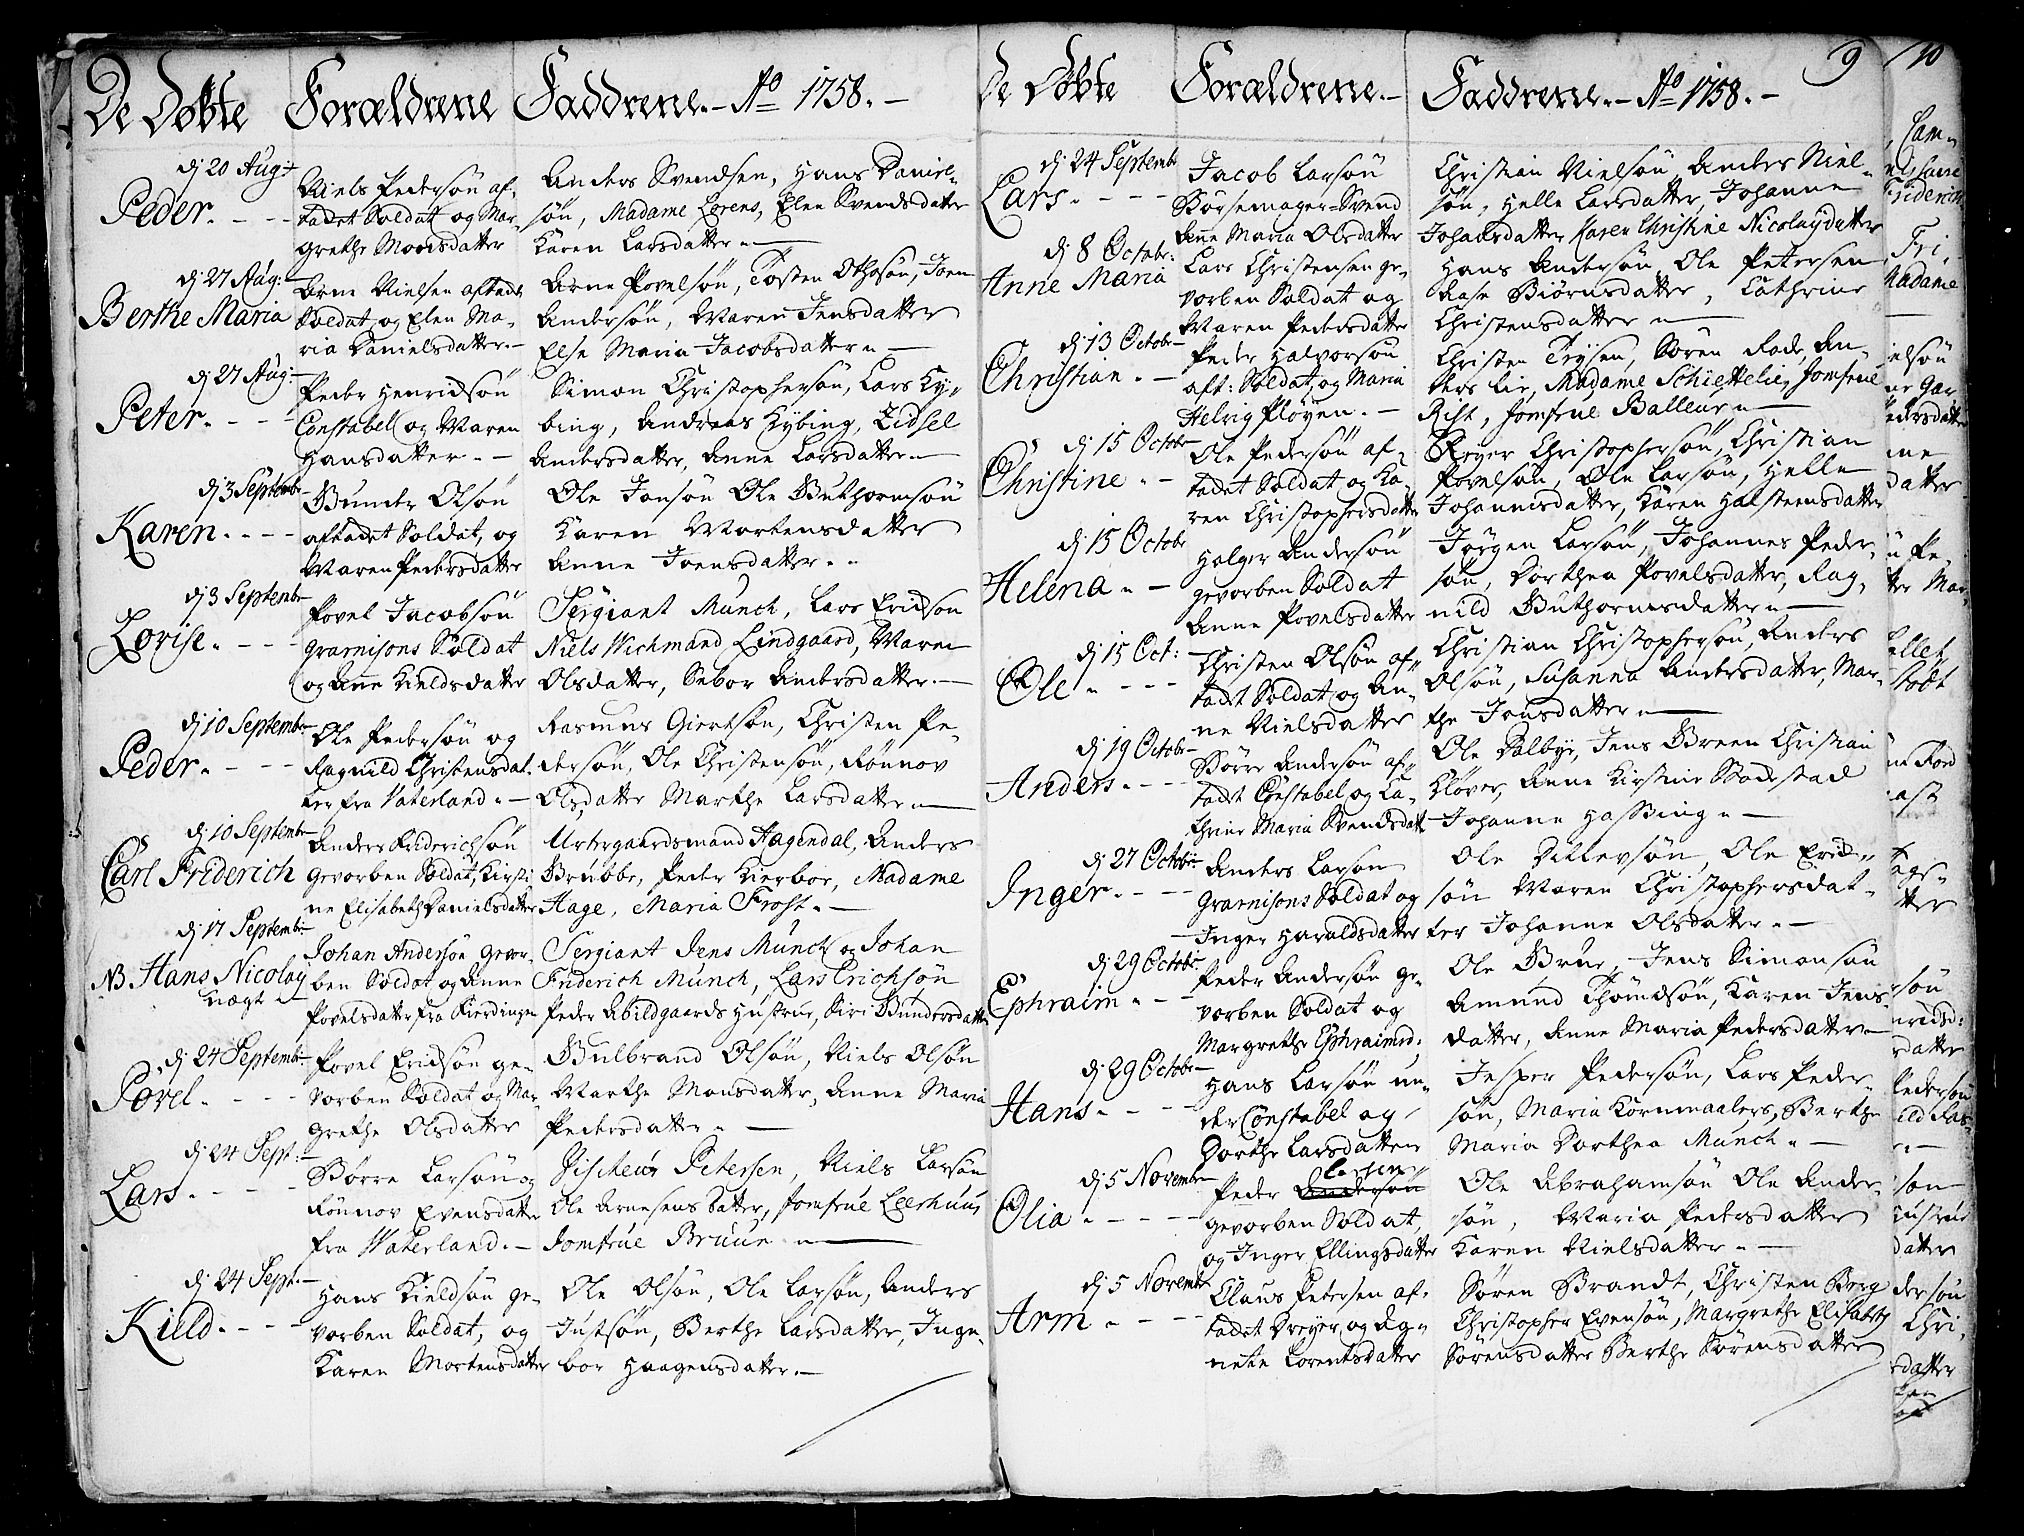 De Døbte Forældrene Faddrene. Ao 1758.
dj 20 Aug:
Peder.
Niels Pedersøn af-
tadet Soldat og Mar-
grethe Moensdatter
Anders Svendsen, Hans Daniel-
søn, Madame Lorens, Elen Svendsdatter
Karen Larsdatter
dj 27 Aug:
Berthe Maria
Arne Nielsen aftadt
Soldat og Elen Ma-
ria Danielsdatter.
Arne Povelsøn, Tosten Othosøn, Joen
Andersøn, Maren Jensdatter
Else Maria Jacobsdatter
dj 27 Aug:
Peter.
Peder Henrichsøn
Constabel og Maren
Hansdatter.
Simon Christophersøn, Lars Ky-
bing, Andreas Kybing, Zidsel
Andersdatter, Anne Larsdatter
dj 3 Septembr
Karen.
Gunder Olsøn
aftadet Soldat, og
Maren Pedersdatter
Ole Jonsøn Ole Guthormsøn
Karen Mortensdatter
Anne Joensdatter.
dj 3 Septembr
Lovise.
Povel Jacobsøn
Grarnisons Soldat
og Anne Kieldsdatter
Sergiant Munch, Lars Erichsøn
Niels Wichmand Lindgaard, Maren
Olsdatter, Sebor Andersdatter.
dj 10 Septembr
Peder.
Ole Pedersøn og
Ragnild Christensdat-
ter fra Vaterland.
Rasmus Giertsøn, Christen Pe-
dersøn, Ole Christensøn, Rønnov
Olsdatter Marthe Larsdatter
dj 10 Septembr
Carl Friderich
Anders Friderichsøn
Gevorben Soldat, Kirsti-
ne Elisabeth Danielsdatter
Urtegaardsmand Hagendal, Anders
Brubbe, Peder Kierboe, Madame
Hage, Maria Frost.
dj 17 Septembr
NB Hans Nicolay
uægte
Johan Andersøn Gevor-
ben Soldat og Anne
Povelsdatter fra Fierdingen
Sergiant Jens Munch og Johan
Friderich Munch, Lars Erichsøn
Peder Abildgaards Hustrue, Siri Gundersdatter
dj 24 Septembr
Povel.
Povel Erichsøn ge-
vorben Soldat og Mar-
grethe Olsdatter
Gulbrand Olsøn, Niels Olsøn
Marthe Monsdatter, Anne Maria
Pedersdatter
dj 24 Sept:
Lars.
Børre Larsøn og
Rønnov Evensdatter
fra Vaterland.
Vischeur Petersen, Niels Larsøn
Ole Arnesens Datter, Jomfrue Leerhuus
Jomfrue Bruun
dj 24 Sept.
Kield.
Hans Kieldsøn ge-
vorben Soldat, og
Karen Mortensdatter
Ole Olsøn, Ole Larsøn, Anders
Justsøn, Berthe Larsdatter, Inge-
bor Haagensdatter.
De Døbte Forældrene. Faddrene. Ao 1758. 9
dj 24 Septembr
Lars.
Jacob Larsøn
Børsemager-Svend
Anne Maria Olsdatter
Christian Nielsøn Anders Niel-
søn, Helle Larsdatter, Johanne
Johansdatter Karen Christine Nicolaydatter
dj 8 Octobr:
Anne Maria
Lars Christensen ge-
vorben Soldat og
Maren Pedersdatter
Hans Andersøn, Ole Petersen
Aase Biørnsdatter, Cathrine
Christensdatter
dj 13 Octobr
Christian.
Peder Halvorsøn
aft: Soldat, og Maria
Helvig Pløyen.
Christen Trysen, Søren Rode, An-
ders Lie, Madame Schiettelie, Jomfrue
Rist, Jomfrue Balleur
dj 15 Octobr
Christine.
Ole Pedersøn af-
tadet Soldat og Ka-
ren Christophersdatter
Reyer Christophersøn, Christian
Povelsøn, Ole Larsøn, Helle
Johannisdatter, Karen Halsteensdatter
dj 15 Octobr
Helena.
Holger Andersøn
gevorben Soldat
Anne Povelsdatter
Jørgen Larsøn, Johannes Peder-
søn, Dorthea Povelsdatter, Rag-
nild Guthormsdatter
dj 15 Oct:
Ole
Christen Olsøn af-
tadt Soldat og An-
ne Nielsdatter
Christian Christophersøn, Anders
Olsøn, Susanna Andersdatter, Mar-
the Jonsdatter
dj 19 Octobr
Anders.
Børre Andersøn af-
tadt Constabel og Ca-
thrine Maria Svendsdatt
Ole Dalbye, Jens Breen Christian
Kløver, Anne Kirstine Bødestad
Johanne Hassing
dj 27 Octobr:
Inger.
Anders Larsøn
Grarnisons Soldat og
Inger Haraldsdatter
Ole Dillevsøn, Ole Erich-
søn Maren Christophersdat-
ter Johanne Olsdatter
dj 29 Octobr:
Ephraim
Peder Andersøn ge-
vorben Soldat og
Margrethe Ephraimsd:
Ole Brue Jens Simonsøn
Amund Thomdsøn, Karen Jens-
datter, Anne Maria Pedersdatter
dj 29 Octobr
Hans.
Hans Larsøn un-
der Constabel og
Dorthe Larsdatter
Jesper Pedersøn, Lars Peder-
søn, Maria Kornmaalers, Berthe
Maria Dorthea Munch
dj 5 Novembr
Olia.
Larsen
Peder Andersøn
gevorben Soldat,
og Inger Ellingsdatter
Ole Abrahamsøn Ole Ander-
søn, Maria Pedersdatter
Karen Nielsdatter
dj 5 Novembr
Arm
Claus Petersen af-
tadet Dreyer, og Ag-
nete Lorentsdatter
Søren Brandt, Christen Berg
Christopher Evensøn, Margrethe Elisabeth
Sørensdatter Berthe Sørensdatter
10
Friderich
Fri,
Madame